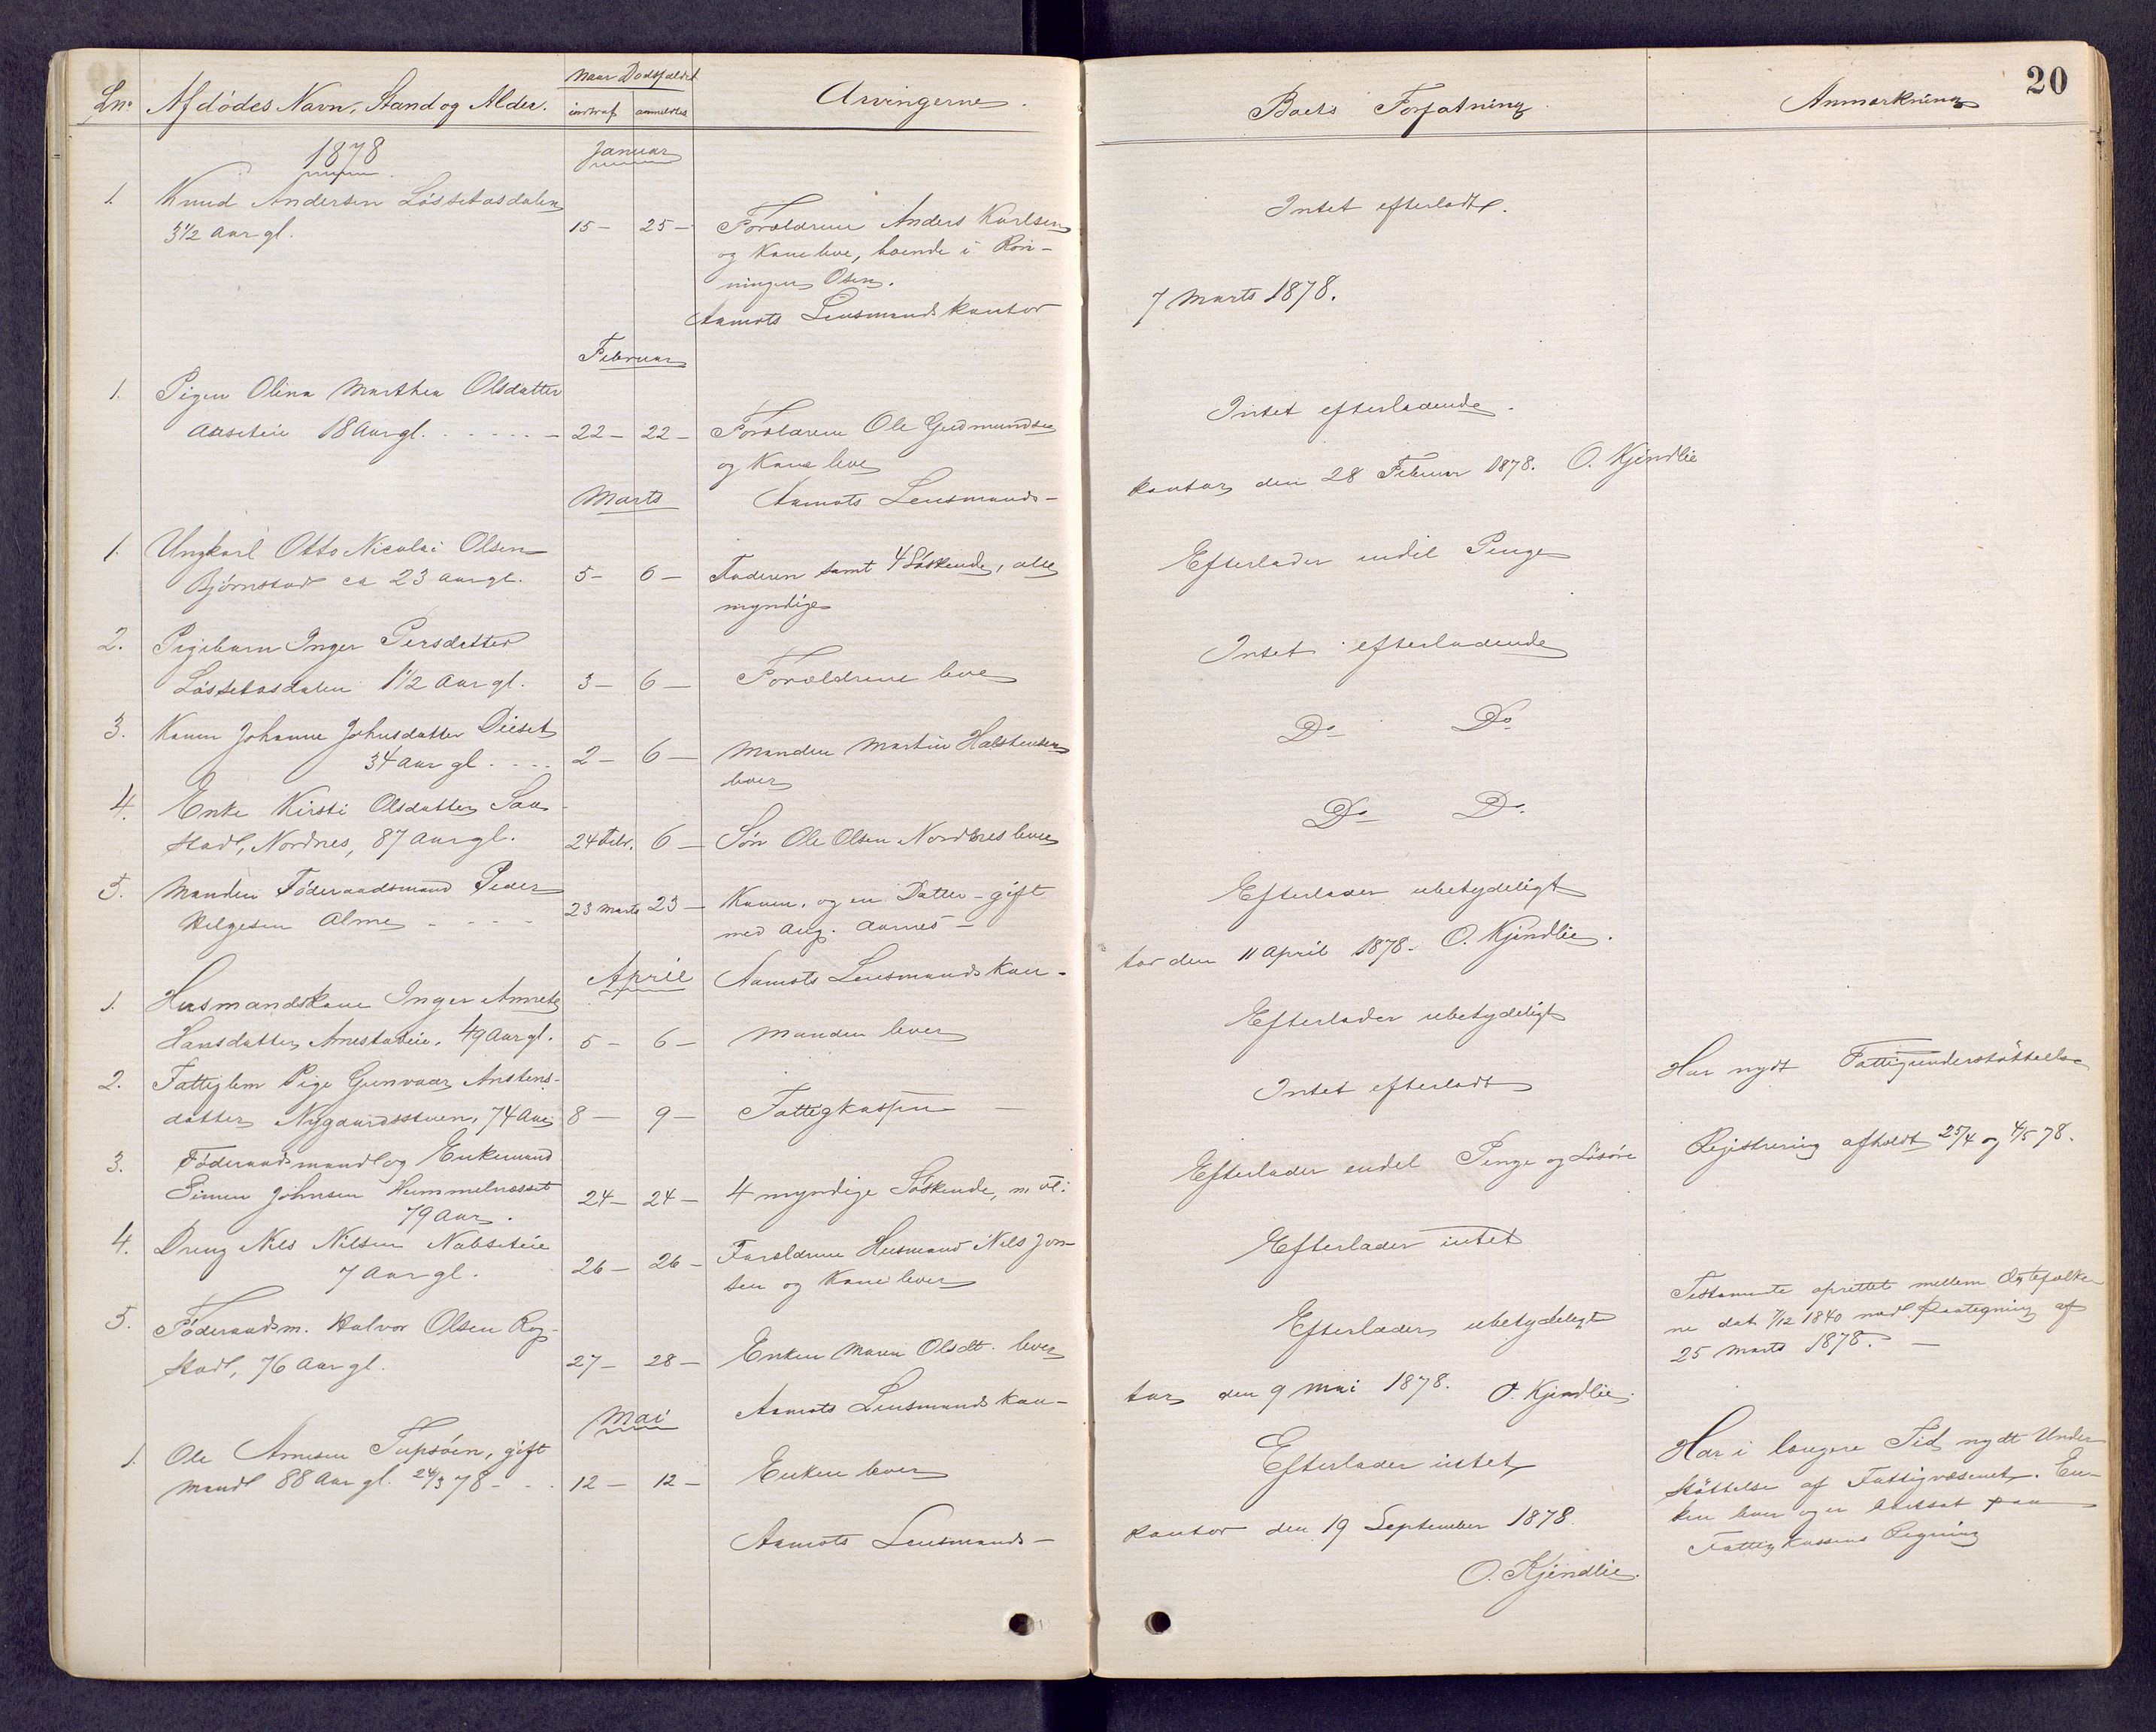 20
Lno Afdödes Navn, Stand og Alder. Naar Dødsfaldet indtraf anmeldtes Arvingerne. Boets Forfatning Anmærkning
1878 Januar
1. Knud Andersen Løssetasdalen Intet efterladt.
3 1/2 Aar gl. 15 – 25 – Forældrene Anders Karlsen
og Kone leve, boende i Røn-
ningen Osen.
Aamots Lensmandskontor 7 Marts 1878.
Februar
1. Pigen Olina Marthea Olsdatter Intet efterladende.
Aasetie 18 Aar gl. 22 – 22 – Forældrene Ole Gudmundsen
og Kone leve
Aamots Lensmands- kontor den 28 Februar 1878. O. Kjendlie
Marts
1. Ungkarl Otto Nicolai Olsen Efterlader endel Penge
Bjørnstad ca 23 Aar gl. 5 – 6 – Faderen samt 4 Søskende, alle
myndige
2. Pigebarn Inger Persdatter Intet efterladende
Løssetasdalen 1 1/2 Aar gl. 3 – 6 – Forældrene leve
3. Konen Johanne Johnsdatter Deset Do Do
34 Aar gl. 2 – 6 – Manden Martin Halstensen
lever
4. Enke Kirsti Olsdatter Sau- Do Do
stad, Nordnes, 87 Aar gl. 24 Febr. 6 – Søn Ole Olsen Nordnes lever
5. Manden Föderaadsmand Peder Efterlader ubetydeligt
Helgesen Alme 23 Marts 23 – Konen, og en Datter – gift
med Aug. Aarnes –
April Aamots Lensmandskon- tor den 11 April 1878. O. Kjendlie.
1. Husmandskone Inger Annete Efterlader ubetydeligt
Hansdatter Arnestadeie. 49 Aar gl. 5 – 6 – Manden lever
2. Fattiglem Pige Gunvaar Anstens- Intet efterladt Har nydt Fattigunderstøttelse
datter Nygaardsstuen, 74 Aar 8 – 9 – Fattigkassen –
3. Föderaadsmand og Enkemand Efterlader endel Penge og Løsøre Registrering afholdt 25/4 og 4/5 78.
Simen Johnsen Hummelnesset 24 – 24 – 4 myndige Søskende, m. fl.
79 Aar.
4. Dreng Nils Nilsen Nabseteie Efterlader intet
7 Aar gl. 26 – 26 – Forældrene Husmand Nils Jon-
sen og Kone lever
5. Föderaadsm. Halvor Olsen Rog- Efterlader ubetydeligt Testamente oprettet mellem Ægtefolke-
stad, 76 Aar gl. 27 – 28 – Enken Maren Olsdt. lever ne dat 7/12 1840 med Paategning af
25 Marts 1878. –
Aamots Lensmandskon- tor den 9 Mai 1878. O. Kjendlie.
Mai
1. Ole Arnesen Tupsøen, gift Efterlader intet Har i længere Tid nydt Under-
mand 88 Aar gl. 24/3 78 – 12 – 12 – Enken lever støttelse af Fattigvæsenet. En-
ken lever og er bortsat paa
Fattigkassens Regning
Aamots Lensmands- kontor den 19 September 1878.
O. Kjendlie.